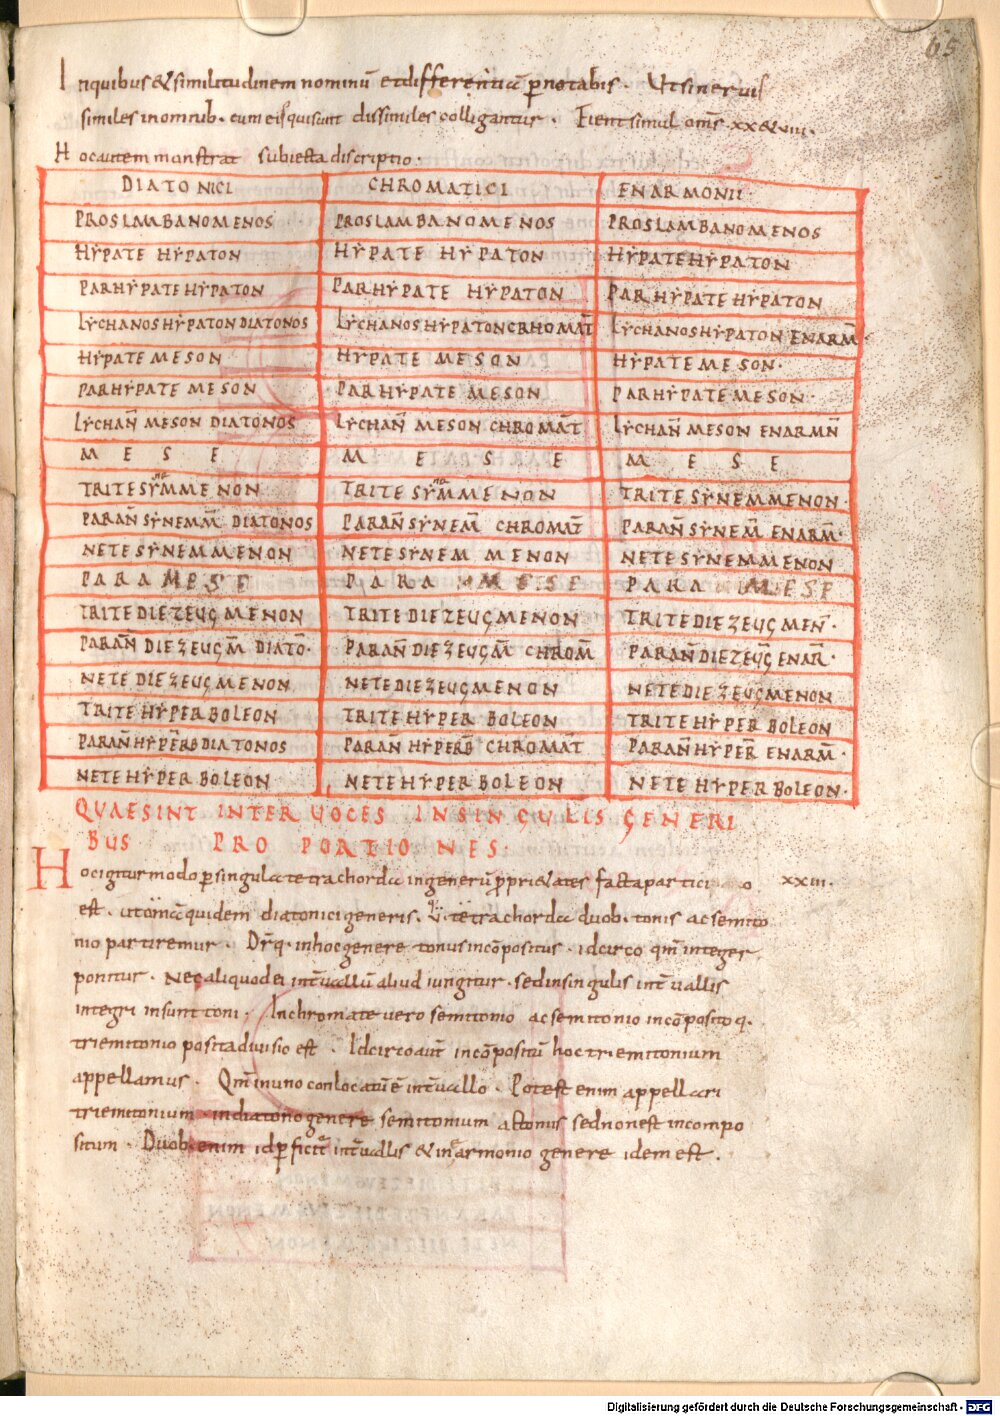 65
Inquibus & similitudinem nominū et differentiā p notabis. Ut si neruis
similes in omnib. cum eis qui sunt dissimiles colligantur. Fient simul om̄s xx&viii.
Hoc autem monstrat subiecta discriptio.
DIATONICI CHROMATICI ENARMONII
PROSLAMBANOMENOS PROSLAMBANOMENOS PROSLAMBANOMENOS
HẎPATE HẎPATON HẎPATE HẎPATON HẎPATE HẎPATON
PARHẎPATE HẎPATON PARHẎPATE HẎPATON PARHẎPATE HẎPATON
LẎCHANOS HẎPATON DIATONOS LẎCHANOS HẎPATON CRHOMAT̄ LẎCHANOS HẎPATON ENARM̄
HẎPATE MESON HẎPATE MESON HẎPATE MESON.
PARHẎPATE MESON PARHẎPATE MESON PARHẎPATE MESON.
LẎCHAN̄ MESON DIATONOS LẎCHAN̄ MESON CHROMAT̄ LẎCHAN̄ MESON ENARMN̄
MESE MESE MESE
TRITE SẎMMENON TRITE SẎMMENON TRITE SẎNEMMENON.
PARAN̄ SẎNEMM̄ DIATONOS PARAN̄ SẎNEM̄ CHROMAT̄ PARAN̄ SẎNEM̄ ENARM̄.
NETE SẎNEMMENON NETE SẎNEMMENON NETE SẎNEMMENON
PARAMESE PARAMESE PARAMESE
TRITE DIEZEUGMENON TRITE DIEZEUGMENON TRITE DIEZEUGMEN̄.
PARAN̄ DIEZEUGM̄ DIATO. PARAN̄ DIEZEUGM̄ CHROM̄ PARAN̄ DIEZEUḠ ENAR̄.
NETE DIEZEUGMENON NETE DIEZEUGMENON NETE DIEZEUGMENON
TRITE HẎPERBOLEON TRITE HẎPERBOLEON TRITE HẎPERBOLEON
PARAN̄ HẎPERB̄ DIATONOS PARAN̄ HẎPERB̄ CHROMAT̄ PARAN̄ HẎPER̄ ENARM̄.
NETE HẎPERBOLEON NETE HẎPERBOLEON NETE HẎPERBOLEON.
QUAE SINT INTER UOCES IN SINGULIS GENERI
BUS PROPORTIONES.
Hoc igitur modo p singula tetrachorda in generū pprietates facta partici o xxiii.
est. ut om̄a quidem diatonici generis. tetrachorda duob. tonis ac semito
nio partiremur. Dr̄q. in hoc genere tonus incōpositus. idcirco qm̄ integer
ponitur. Nec aliquod ei int̄uallū aliud iungitur. sed in singulis int̄uallis
integri insunt toni. In chromate uero semitonio ac semitonio incōpositoq.
triemitonio posita diuisio est. Idcirco aut̄ incōpositū hoc triemitonium
appellamus. Qm̄ in uno conlocatū ē int̄uallo. Potest enim appellari
triemitonium in diatono genere semitonium ac tonus sed non est incompo
situm. Duob. enim id pficit̄ int̄uallis & in enarmonio genere idem est.
Digitalisierung gefördert durch die Deutsche Forschungsgemeinschaft - DFG